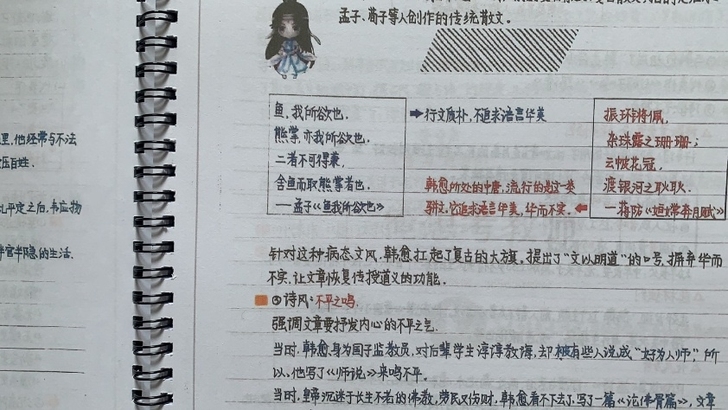 孟子、荀子等人创作的传统散文。
里,他经常与不法
压百姓.
乱平定之后,韦应物
半官半隐的生活.
鱼,我所欲也,
熊掌,亦我所欲也.
二者不可得兼,
舍鱼而取熊掌者也.
——孟子《鱼我所欲也》
➡行文质朴,不追求语言华美
韩愈所处的中唐,流行的是这一类
骈文,它追求语言华美,华而不实.⬅
振环锵佩,
杂珠露之珊珊;
云帔花冠,
渡银河之耿耿.
—蒋防《姮娥奔月赋》
针对这种病态文风,韩愈扛起了复古的大旗,提出了"文以明道"的口号,摒弃华而
不实,让文章恢复传授道义的功能.
③诗风:不平之鸣.
强调文章要抒发内心的不平之气.
当时,韩愈身为国子监教员,对后辈学生谆谆教诲,却被有些人说成"好为人师"所
以,他写了《师说》来鸣不平.
当时,皇帝沉迷于长生不老的佛教,劳民又伤财,韩愈看不下去了,写了一篇《论佛骨篇》,文章